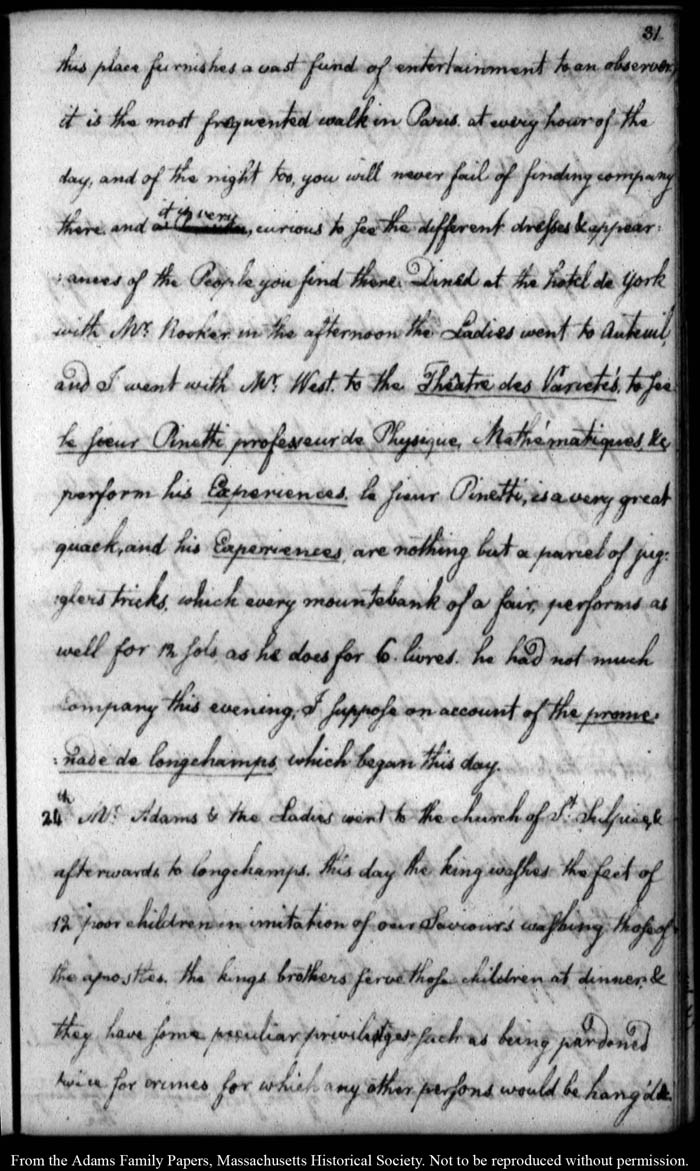 31
this place furnishes a vast fund of entertainment to an observer,
it is the most frequented walk in Paris. at every hour of the
day, and of the night too, you will never fail of finding company
it is very
there. and , curious to see the different dresses & appear:
:ances of the People you find there. Dined at the hotel de York
with Mr. Rooker. in the afternoon the Ladies went to Auteuil,
and I went with Mr. West. to the Théatre des Varietés, to see
le Sieur Pinetti professeur de Physique, Mathématiques, &c,
perform his Experiences. le Sieur Pinetti, is a very great
quack, and his Experiences, are nothing but a parcel of jug:
:glers tricks, which every mountebank of a fair, performs as
well for 12 sols, as he does for 6. livres. he had not much
Company this evening, I suppose on account of the prome:
:nade de longchamps, which began this day.
24th Mr. Adams & the Ladies went to the church of St. Sulpice, &
afterwards to longchamps. this day the king washes the feet of
12 poor children in imitation of our Saviour's washing those of
the apostles. the kings brothers serve those children at dinner, &
they have some peculiar priviledges such as being pardoned
twice for crimes for which any other persons would be hang'd &c.
From the Adams Family Papers, Massachusetts Historical Society. Not to be reproduced without permission.